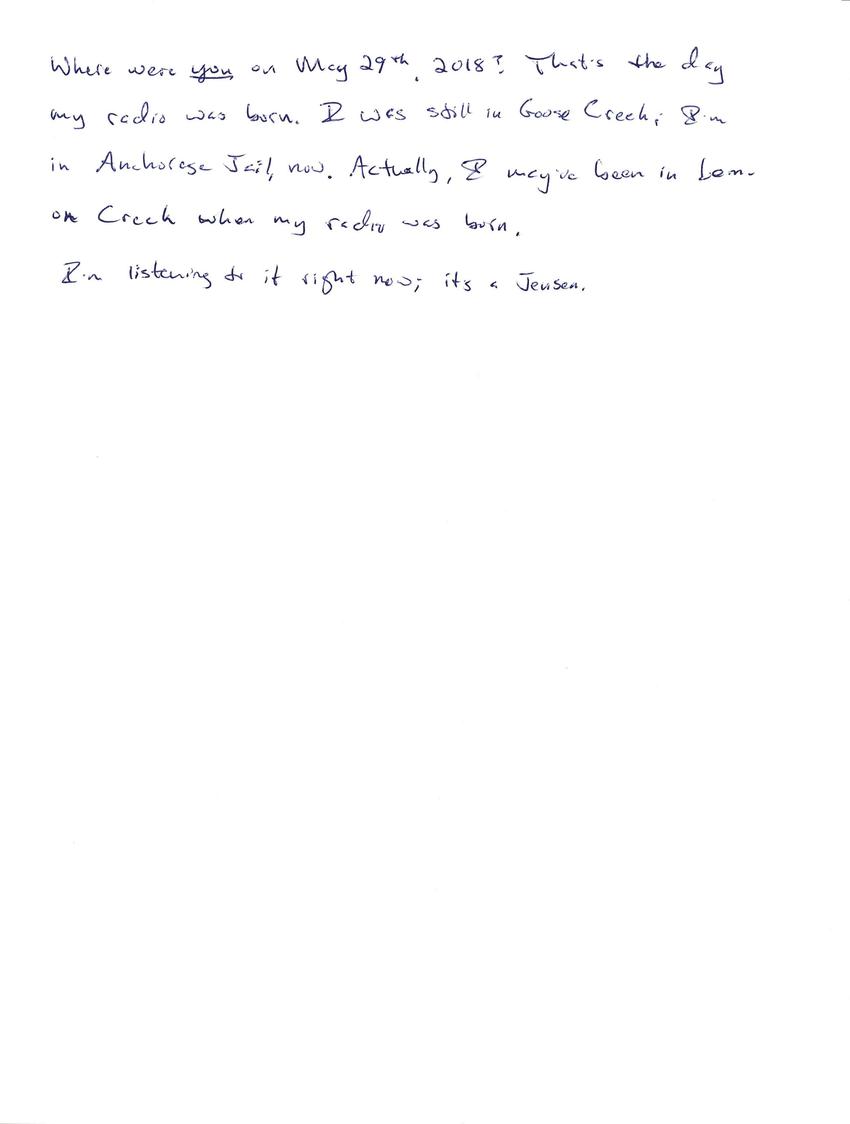 Where were you on May 29th, 2018? That's the day
my radio was born. I was still in Goose Creek; I'm
in Anchorage Jail, now. Actually, I may've been in Lem-
on Creek when my radio was born.
I'm listening to it right now; its a Jensen.